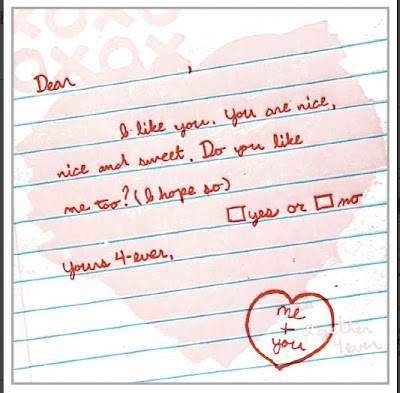 XOXO
XOX
Dear ,
I like you. You are nice,
nice and sweet. Do you like
me too? (I hope so)
☐yes or ☐no
Yours 4-ever,
me
+
you
4ever